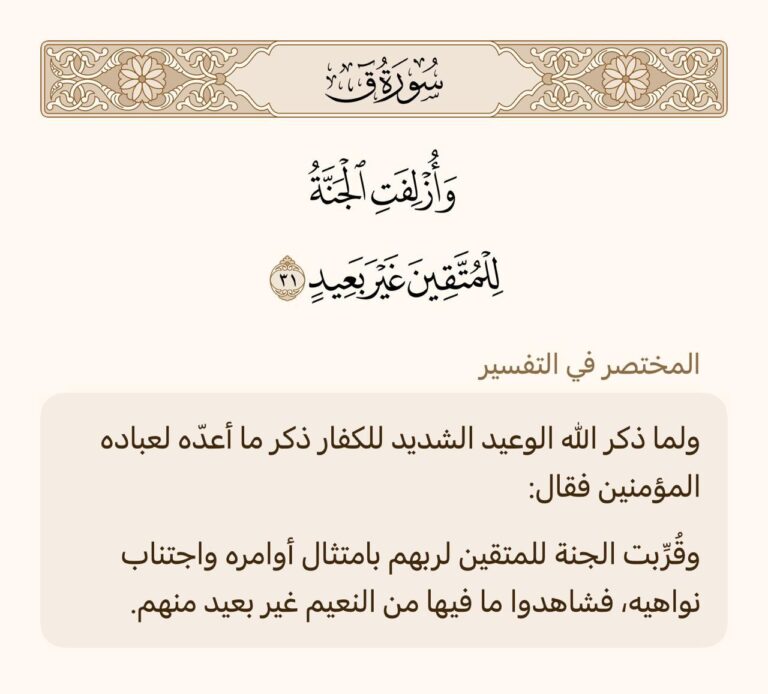 سُورَةُ قٓ
وَأُزۡلِفَتِ ٱلۡجَنَّةُ
لِلۡمُتَّقِينَ غَيۡرَ بَعِيدٍ ٣١
المختصر في التفسير
ولما ذكر الله الوعيد الشديد للكفار ذكر ما أعدّه لعباده
المؤمنين فقال:
وقُرِّبت الجنة للمتقين لربهم بامتثال أوامره واجتناب
نواهيه، فشاهدوا ما فيها من النعيم غير بعيد منهم.